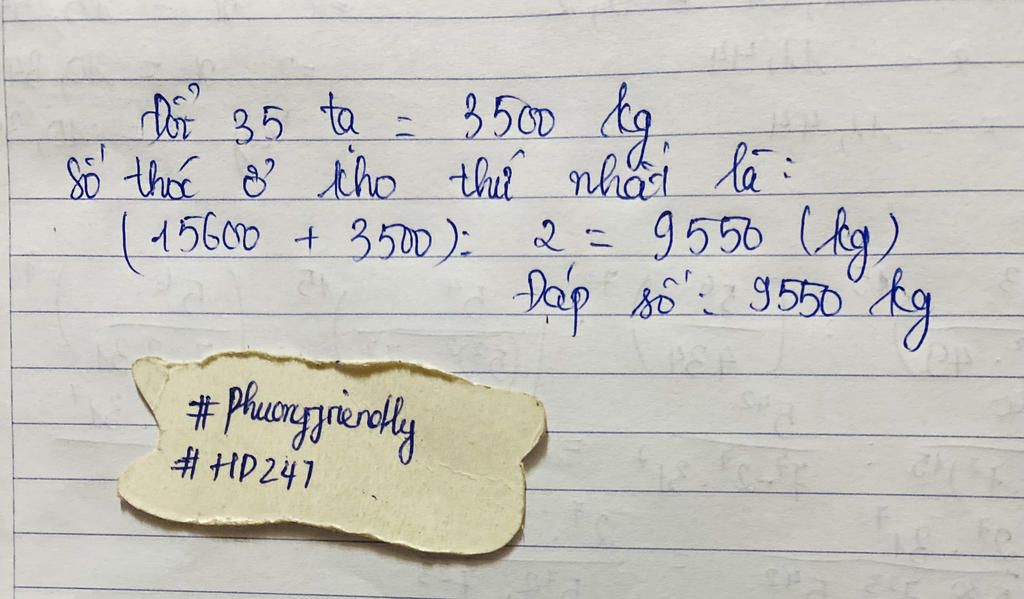 Đổi 35 tạ = 3500 kg
Số thóc ở kho thứ nhất là:
(15600 + 3500): 2 = 9550 (kg)
Đáp số: 9550 kg
#phuongfriendly
#HD247